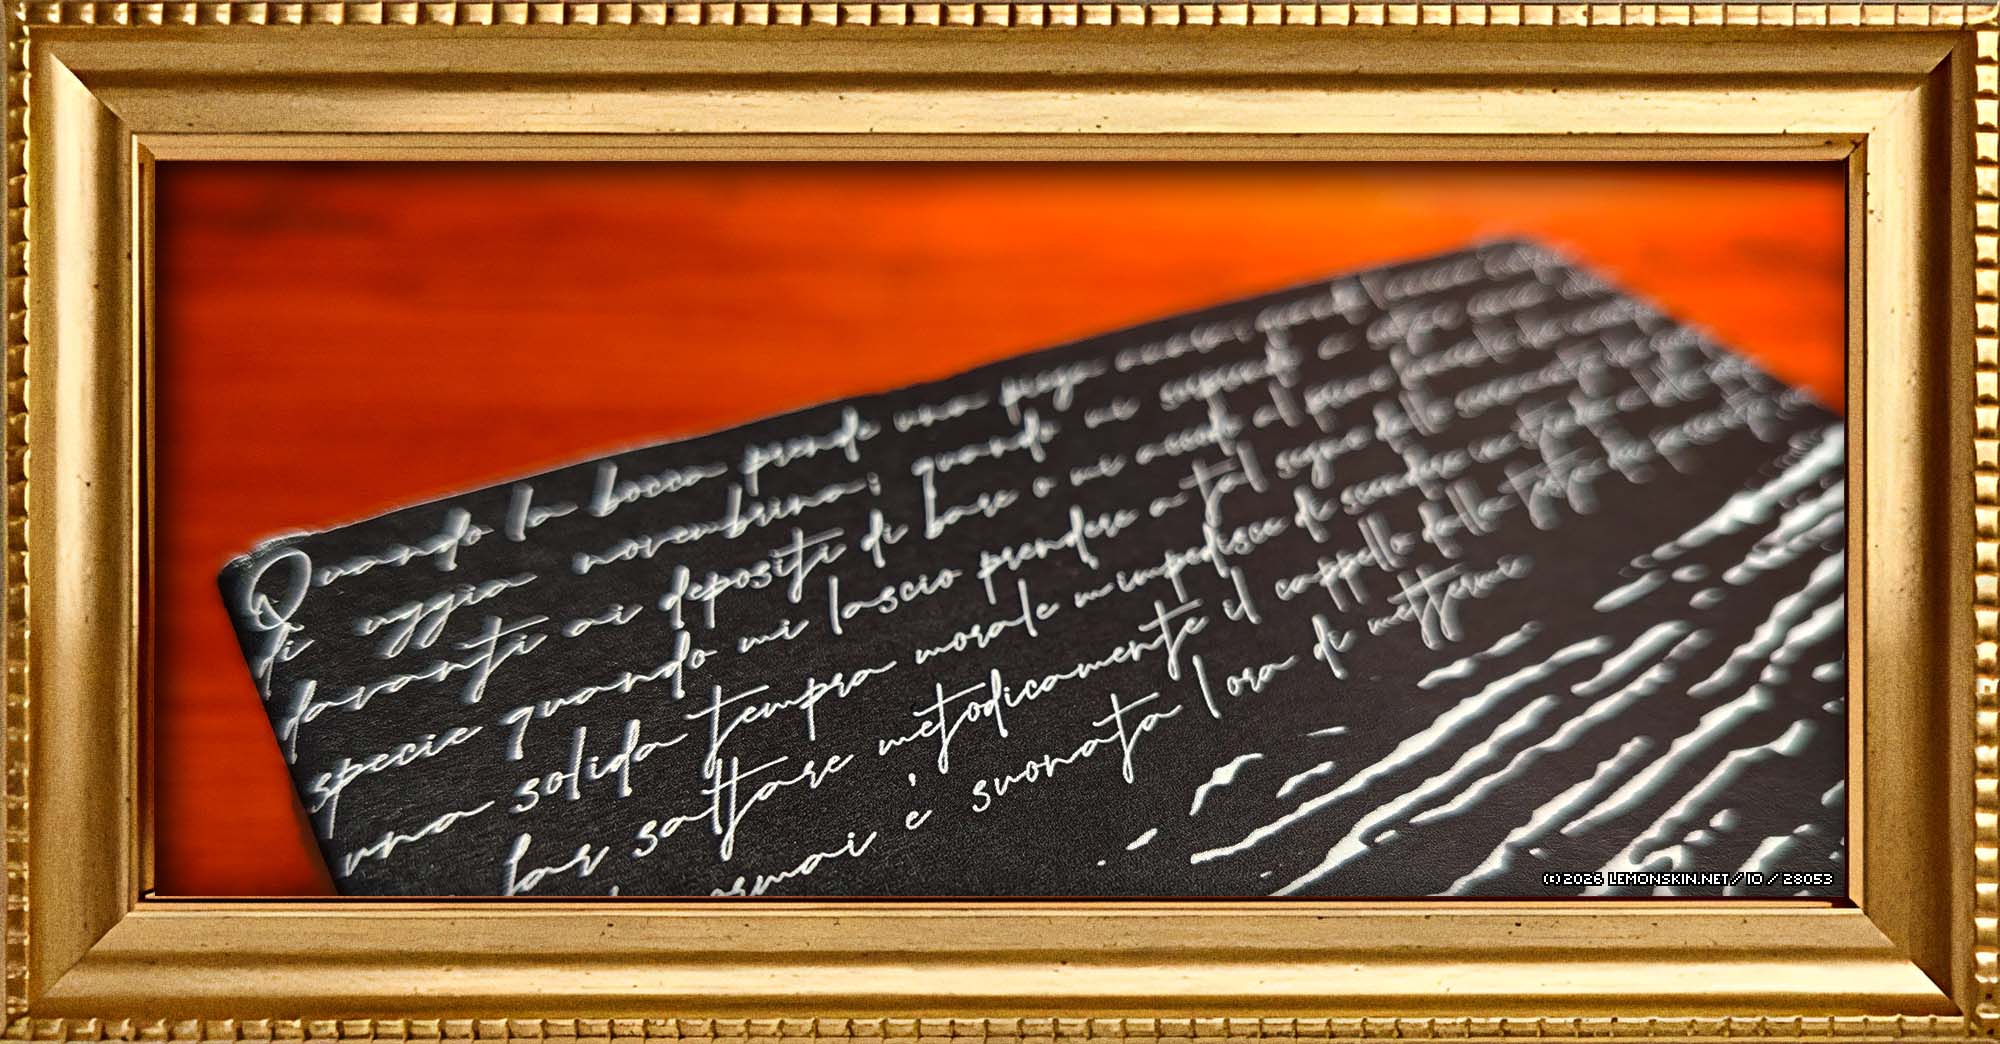 Quando la bocca prende una piega
di uggia novembrina; quando mi sorprendo a
davanti ai depositi di bare o mi accodo al primo
specie quando mi lascio prendere a tal segno dallo
una solida tempra morale m'impedisce di scendere in
far saltare metodicamente il cappello dalla testa
ormai è suonata l ora di mettermi
(C)2026 LEMONSKIN.NET / IO / 28053